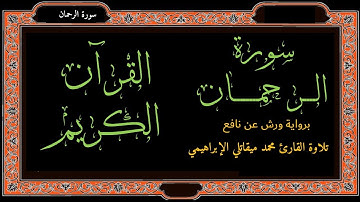 سورة الرحمان
سورة
الرحمان
القرآن
الكريم
برواية ورش عن نافع
تلاوة القارئ محمد ميقاتلي الإبراهيمي